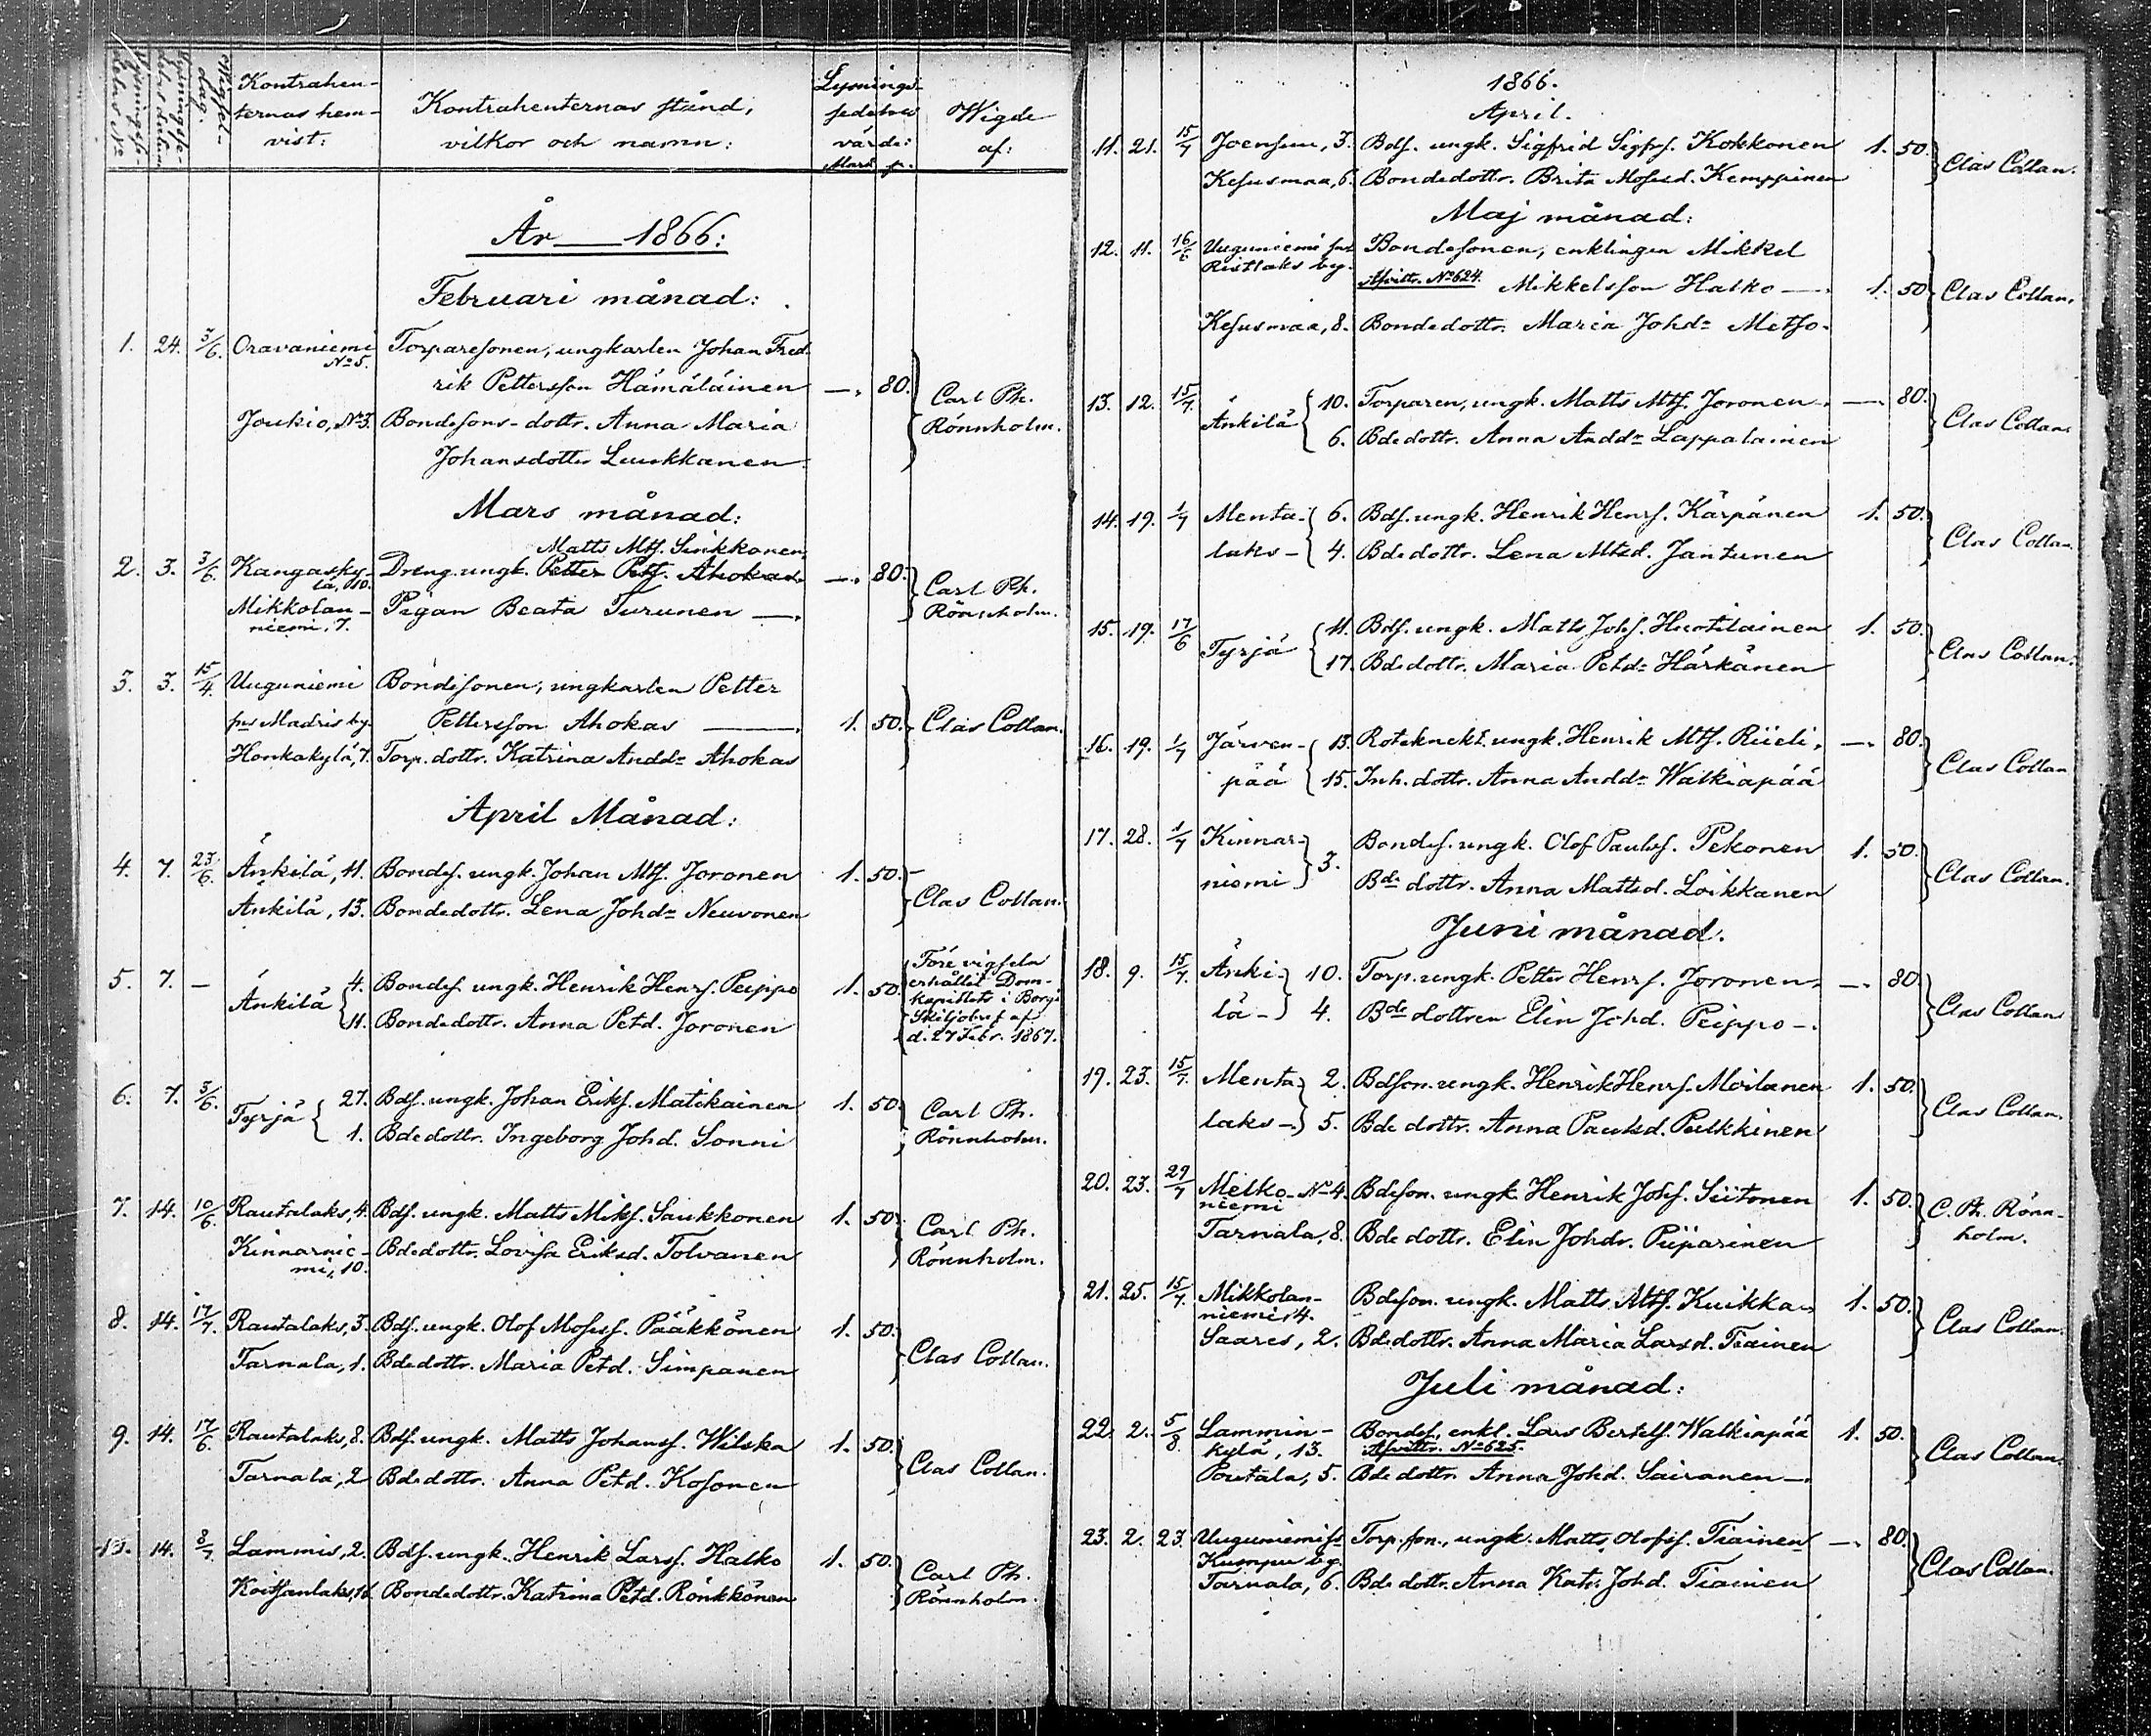 Kontrahen-
ternas hem-
vist:
Kontrahenternas stånd,
vilkor och namn:
Lysnings-
sedelns
värde:
Mark p.
Wigde
af:
År 1866:
Februari månad:
1. 24. 3/6. Oravaniemi Torparesonen, ungkarlen Johan Fred-
No 5.
rik Pettersson Hämäläinen —. 80.
Carl Ph.
Joukio, No 3. Bondesons-dottr. Anna Maria Rönnholm.
Johansdotter Luukkanen
Mars månad:
Matts Mtss. Sinkkonen
2. 3. 3/6. Kangasky- Dreng. ungk. Petter Petss. Ahokas. —. 80. Carl Ph.
lä, 10.
Mikkolan- Pigan Beata Turunen —. Rönnholm.
niemi, 7.
3. 3. 15/4. Uuguniemi Bondesonen, ungkarlen Petter
sns Madris by. Pettersson Ahokas —. 1. 50. Clas Collan.
Honkakylä, 7. Torp. dottr. Katrina Andd:r Ahokas
April Månad:
4. 7. 23/6. Änkilä, 11. Bondes. ungk. Johan Mtss. Joronen 1. 50. Clas Collan.
Änkilä, 13. Bondedottr. Lena Johd:r Neuvonen
5. 7. — Änkilä 4. Bondes. ungk. Henrik Henrs. Peippo 1. 50.
11. Bondedottr. Anna Petd. Joronen
Före vigseln
erhållit Dom-
kapitlets i Borgå
Skiljobref af
d. 27 Febr. 1867.
6. 7. 3/6. Tyrjä 27. Bds. ungk. Johan Eriks. Matikainen 1. 50. Carl Ph.
1. Bdedottr. Ingeborg Johd. Sonni Rönnholm.
7. 14. 10/6. Rautalaks, 4. Bds. ungk. Matts Mikss. Saukkonen 1. 50. Carl Ph.
Kinnarnie- Bdedottr. Lovisa Eriksd. Tolvanen Rönnholm.
mi, 10.
8. 14. 17/7. Rautalaks, 3. Bds. ungk. Olof Moses. Pääkkönen 1. 50. Clas Collan.
Tarnala, 1. Bdedottr. Maria Petd. Simpanen
9. 14. 17/6. Rautalaks, 8. Bds. ungk. Matts Johanss. Wilska 1. 50. Clas Collan.
Tarnala, 2 Bdedottr. Anna Petd. Kosonen
10. 14. 8/7. Lammis, 2. Bds. ungk. Henrik Larss. Halko 1. 50. Carl Ph.
Koitsanlaks, 16. Bondedottr. Katrina Petd. Rönkkönen Rönnholm.
1866.
April.
11. 21. 15/7 Joensuu, 3. Bds. ungk. Sigfrid Sigfrs. Kokkonen 1. 50. Clas Collan.
Kesusmaa, 6. Bondedottr. Brita Mosesd. Kemppinen
Maj månad:
12. 11. 16/6 Uuguniemi sns Bondesonen, enklingen Mikkel
Ristlaks by.
Afvittr. No 624. Mikkelsson Halko —. 1. 50 Clas Collan.
Kesusmaa, 8. Bondedottr. Maria Johd:r Metso.
13. 12. 15/7. Änkilä 10. Torparen, ungk. Matts Mtss. Joronen. — 80. Clas Collan.
6. Bdedottr. Anna Andd:r Lappalainen
14. 19. 1/7 Menta- 6. Bds. ungk. Henrik Henrs. Kärpänen 1. 50. Clas Collan.
laks- 4. Bdedottr. Lena Mtsd. Jantunen
15. 19. 17/6 Tyrjä 11. Bds. ungk. Matts Johs. Huotilainen 1. 50. Clas Collan.
17. Bdedottr. Maria Petd:r Härkänen
16. 19. 1/7 Järven- 13. Roteknekt. ungk. Henrik Mtss. Rüeli. —. 80. Clas Collan
pää 15. Inh. dottr. Anna Andd:r Walkiapää
17. 28. 1/7 Kinnar- 3. Bondes. ungk. Olof Paulss. Pekonen 1. 50. Clas Collan.
niemi Bde dottr. Anna Mattsd. Loikkanen
Juni månad.
18. 9. 15/7. Änki- 10. Torp. ungk. Petter Henrs. Joronen. —. 80. Clas Collan
lä- 4. Bde dottren Elin Johd. Peippo -.
19. 23. 15/7. Menta- 2. Bdeson. ungk. Henrik Henrs. Moilanen 1. 50. Clas Collan.
laks-. 5. Bde dottr. Anna Paulsd. Pulkkinen
20. 23. 29/7 Melko- No 4. Bdeson. ungk. Henrik Johs. Siitonen 1. 50. C. Ph. Rönn-
niemi holm.
Tarnala, 8. Bde dottr. Elin Johdr. Piiparinen
21. 25. 15/7. Mikkolan- Bdeson. ungk. Matts Mtss. Kuikka 1. 50. Clas Collan.
niemi, 4.
Saares, 2. Bdedottr. Anna Maria Larsd. Tiainen
Juli månad:
22. 2. 5/8. Lammin- Bondes. enkl. Lars Bertels. Walkiapää 1. 50. Clas Collan.
kylä, 13. Afvittr. No 625.
Poutala, 5. Bde dottr. Anna Johd. Sairanen —.
23. 2. 23. Uuguniemi sn Torp. son., ungk. Matts Olofss. Tiainen —. 80. Clas Collan.
Kumpu by.
Tarnala, 6. Bde dottr. Anna Katr. Johd. Tiainen